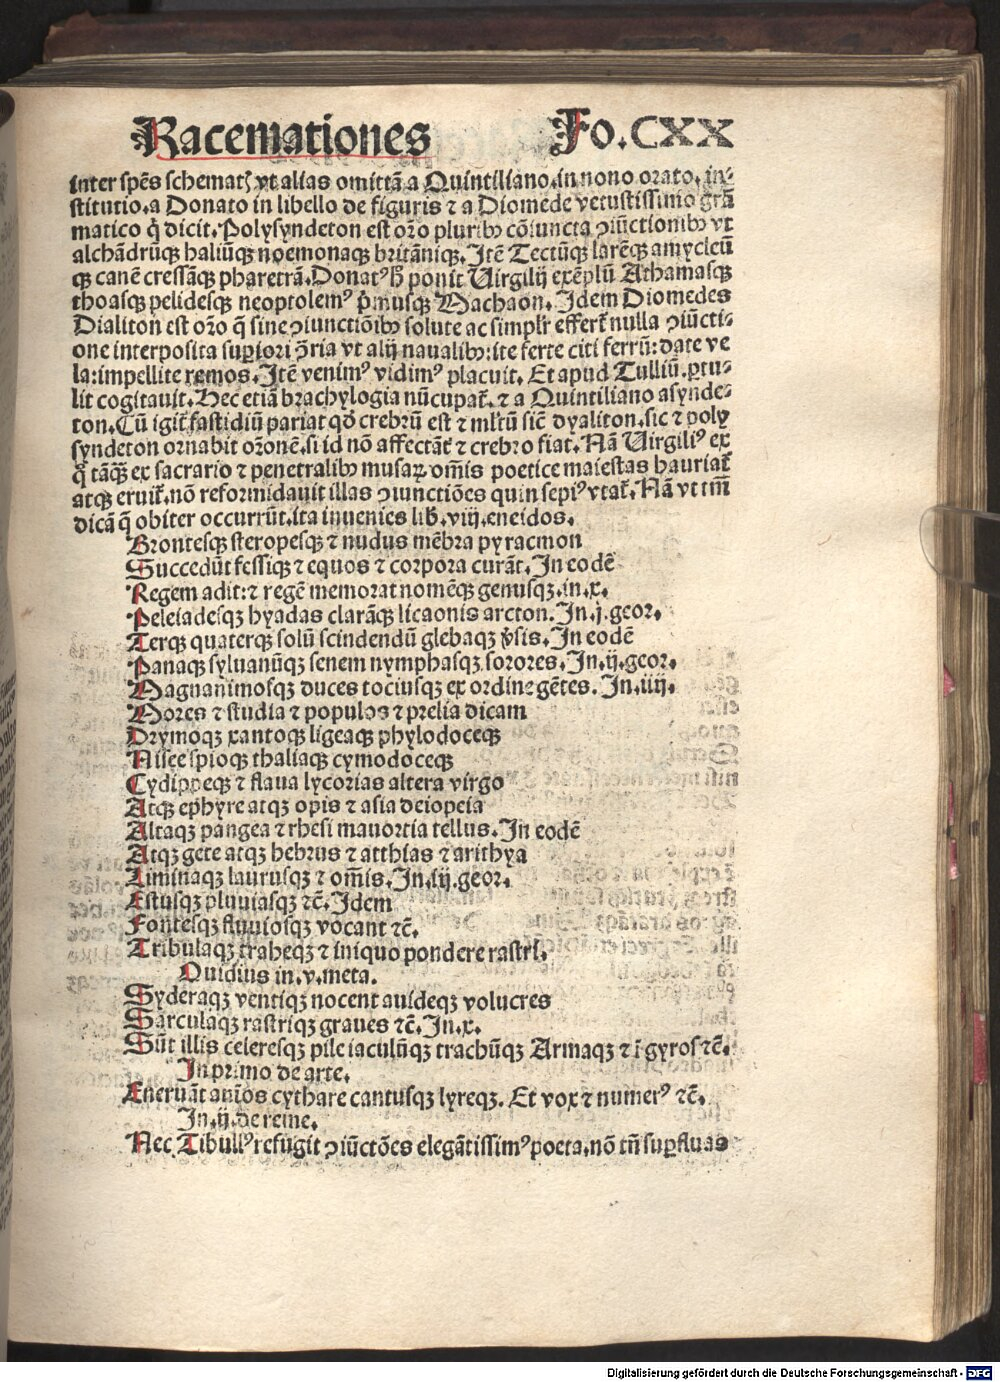 Racemationes Fo.CXX
inter spēs schematꝫ vt alias omittā a Quintiliano.in nono orato. in⸗
stitutio.a Donato in libello de figuris ⁊ a Diomede vetustissimo grā
matico q̄ dicit.Polysyndeton est oŕo pluribꝰ cōiuncta ꝯiūctionibꝰ vt
alchādrūqꝫ haliūqꝫ noemonaqꝫ britāniqꝫ.Itē Tectūqꝫ larēqꝫ amycleū
qꝫ canē cressāqꝫ pharetrā.Donatꝰ h̄ ponit Uirgilij exēplū Athamasqꝫ
thoasqꝫ pelidesqꝫ neoptolemꝰ p̄musqꝫ Machaon.Idem Diomedes
Dialiton est oŕo q̄ sine ꝯiunctiōibꝰ solute ac simplr̄ effert̄ nulla ꝯiūcti⸗
one interposita suꝑiori ꝯ̄ria vt alij naualibꝰ:ite ferte citi ferrū:date ve
la:impellite remos.Itē venimꝰ vidimꝰ placuit. Et apud Tulliū.ꝑtu⸗
lit cogitauit.Hec etiā brachylogia nūcupat̄.⁊ a Quintiliano asynde⸗
ton.Cū igit̄ fastidiū pariat qđ crebrū est ⁊ mĺtū siē dyaliton.sic ⁊ poly
syndeton ornabit oŕonē.si id nō affectāt̄ ⁊ crebro fiat. Nā Uirgiliꝰ ex
q̄ tāqꝫ̄ ex sacrario ⁊ penetralibꝰ musaꝝ om̄is poetice maiestas hauriat̄
atqꝫ eruit̄.nō reformidauit illas ꝯiunctiōes quin sepiꝰ vtat̄.Nā vt tm̄
dicā q̄ obiter occurrūt.ita inuenies lib̄.viij.eneidos.
Brontesqꝫ steropesqꝫ ⁊ nudus mēbra pyracmon
Succedūt fessiqꝫ ⁊ equos ⁊ corpora curāt.In eodē
Regem adit:⁊ regē memorat nomēqꝫ genusqꝫ.in.x.
Peleiadesqꝫ hyadas clarāqꝫ licaonis arcton.In.j.geor.
Terqꝫ quaterqꝫ solū scindendū glebaqꝫ v̄sis.In eodē
Panaqꝫ syluanūqꝫ senem nymphasqꝫ sorores.In.ij.geor.
Magnanimosqꝫ duces tociusqꝫ ex ordine gētes. In.iiij.
Mores ⁊ studia ⁊ populos ⁊ prelia dicam
Drymoqꝫ xantoqꝫ ligeaqꝫ phylodoceqꝫ
Nisee spioqꝫ thaliaqꝫ cymodoceqꝫ
Cydippeqꝫ ⁊ flaua lycorias altera virgo
Atqꝫ ephyre atqꝫ opis ⁊ asia deiopeia
Altaqꝫ pangea ⁊ rhesi mauortia tellus.In eodē
Atqꝫ gete atqꝫ hebrus ⁊ atthias ⁊ arithya
Liminaqꝫ laurusqꝫ ⁊ om̄is.In.iij.geor.
Estusqꝫ pluuiasqꝫ ⁊c̄.Idem
Fontesqꝫ fluuiosqꝫ vocant ⁊c̄.
Tribulaqꝫ traheqꝫ ⁊ iniquo pondere rastri.
Ouidius in.v.meta.
Syderaqꝫ ventiqꝫ nocent auideqꝫ volucres
Sarculaqꝫ rastriqꝫ graues ⁊c̄.In.x.
Sūt illis celeresqꝫ pile iaculūqꝫ trachūqꝫ Armaqꝫ ⁊ ī gyros ⁊c̄.
In primo de arte.
Eneruāt anīos cythare cantusqꝫ lyreqꝫ. Et vox ⁊ numerꝰ ⁊c̄.
In.ij.de reme.
Nec Tibullꝰ refugit ꝯiūctōes elegātissimꝰ poeta.nō tn̄ suꝑfluas
Digitalisierung gefördert durch die Deutsche Forschungsgemeinschaft - DFG